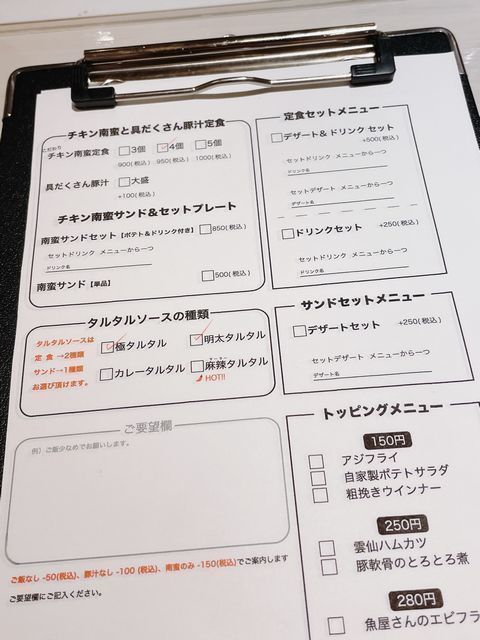 チキン南蜜と具だくさん豚汁定食
こだわり
チキン南蜜定食 3個 4個 5個
900(税込) 950(税込) 1000(税込)
具だくさん豚汁 大盛
+100(税込)
チキン南蜜サンド&セットプレート
南蜜サンドセット【ポテト&ドリンク付き】 850(税込)
セットドリンク メニューから一つ
ドリンク名
南蜜サンド【単品】 500(税込)
タルタルソースの種類
タルタルソースは
定食→2種類
サンド→1種類
お選び頂けます。
極タルタル 明太タルタル
カレータルタル 麻辣タルタル
マーラー
HOT!!
ご要望欄
例）ご飯少なめでお願いします。
ご飯なし -50(税込)、豚汁なし -100 (税込)、南蜜のみ -150(税込)でご案内します
ご要望欄にご記入ください。
定食セットメニュー
デザート& ドリンク セット
+500(税込)
セットドリンク メニューから一つ
ドリンク名
セットデザート メニューから一つ
デザート名
ドリンクセット +250(税込)
セットドリンク メニューから一つ
ドリンク名
サンドセットメニュー
デザートセット +250(税込)
セットデザート メニューから一つ
デザート名
トッピングメニュー
150円
アジフライ
自家製ポテトサラダ
粗挽きウインナー
250円
雲仙ハムカツ
豚軟骨のとろとろ煮
280円
魚屋さんのエビフラ